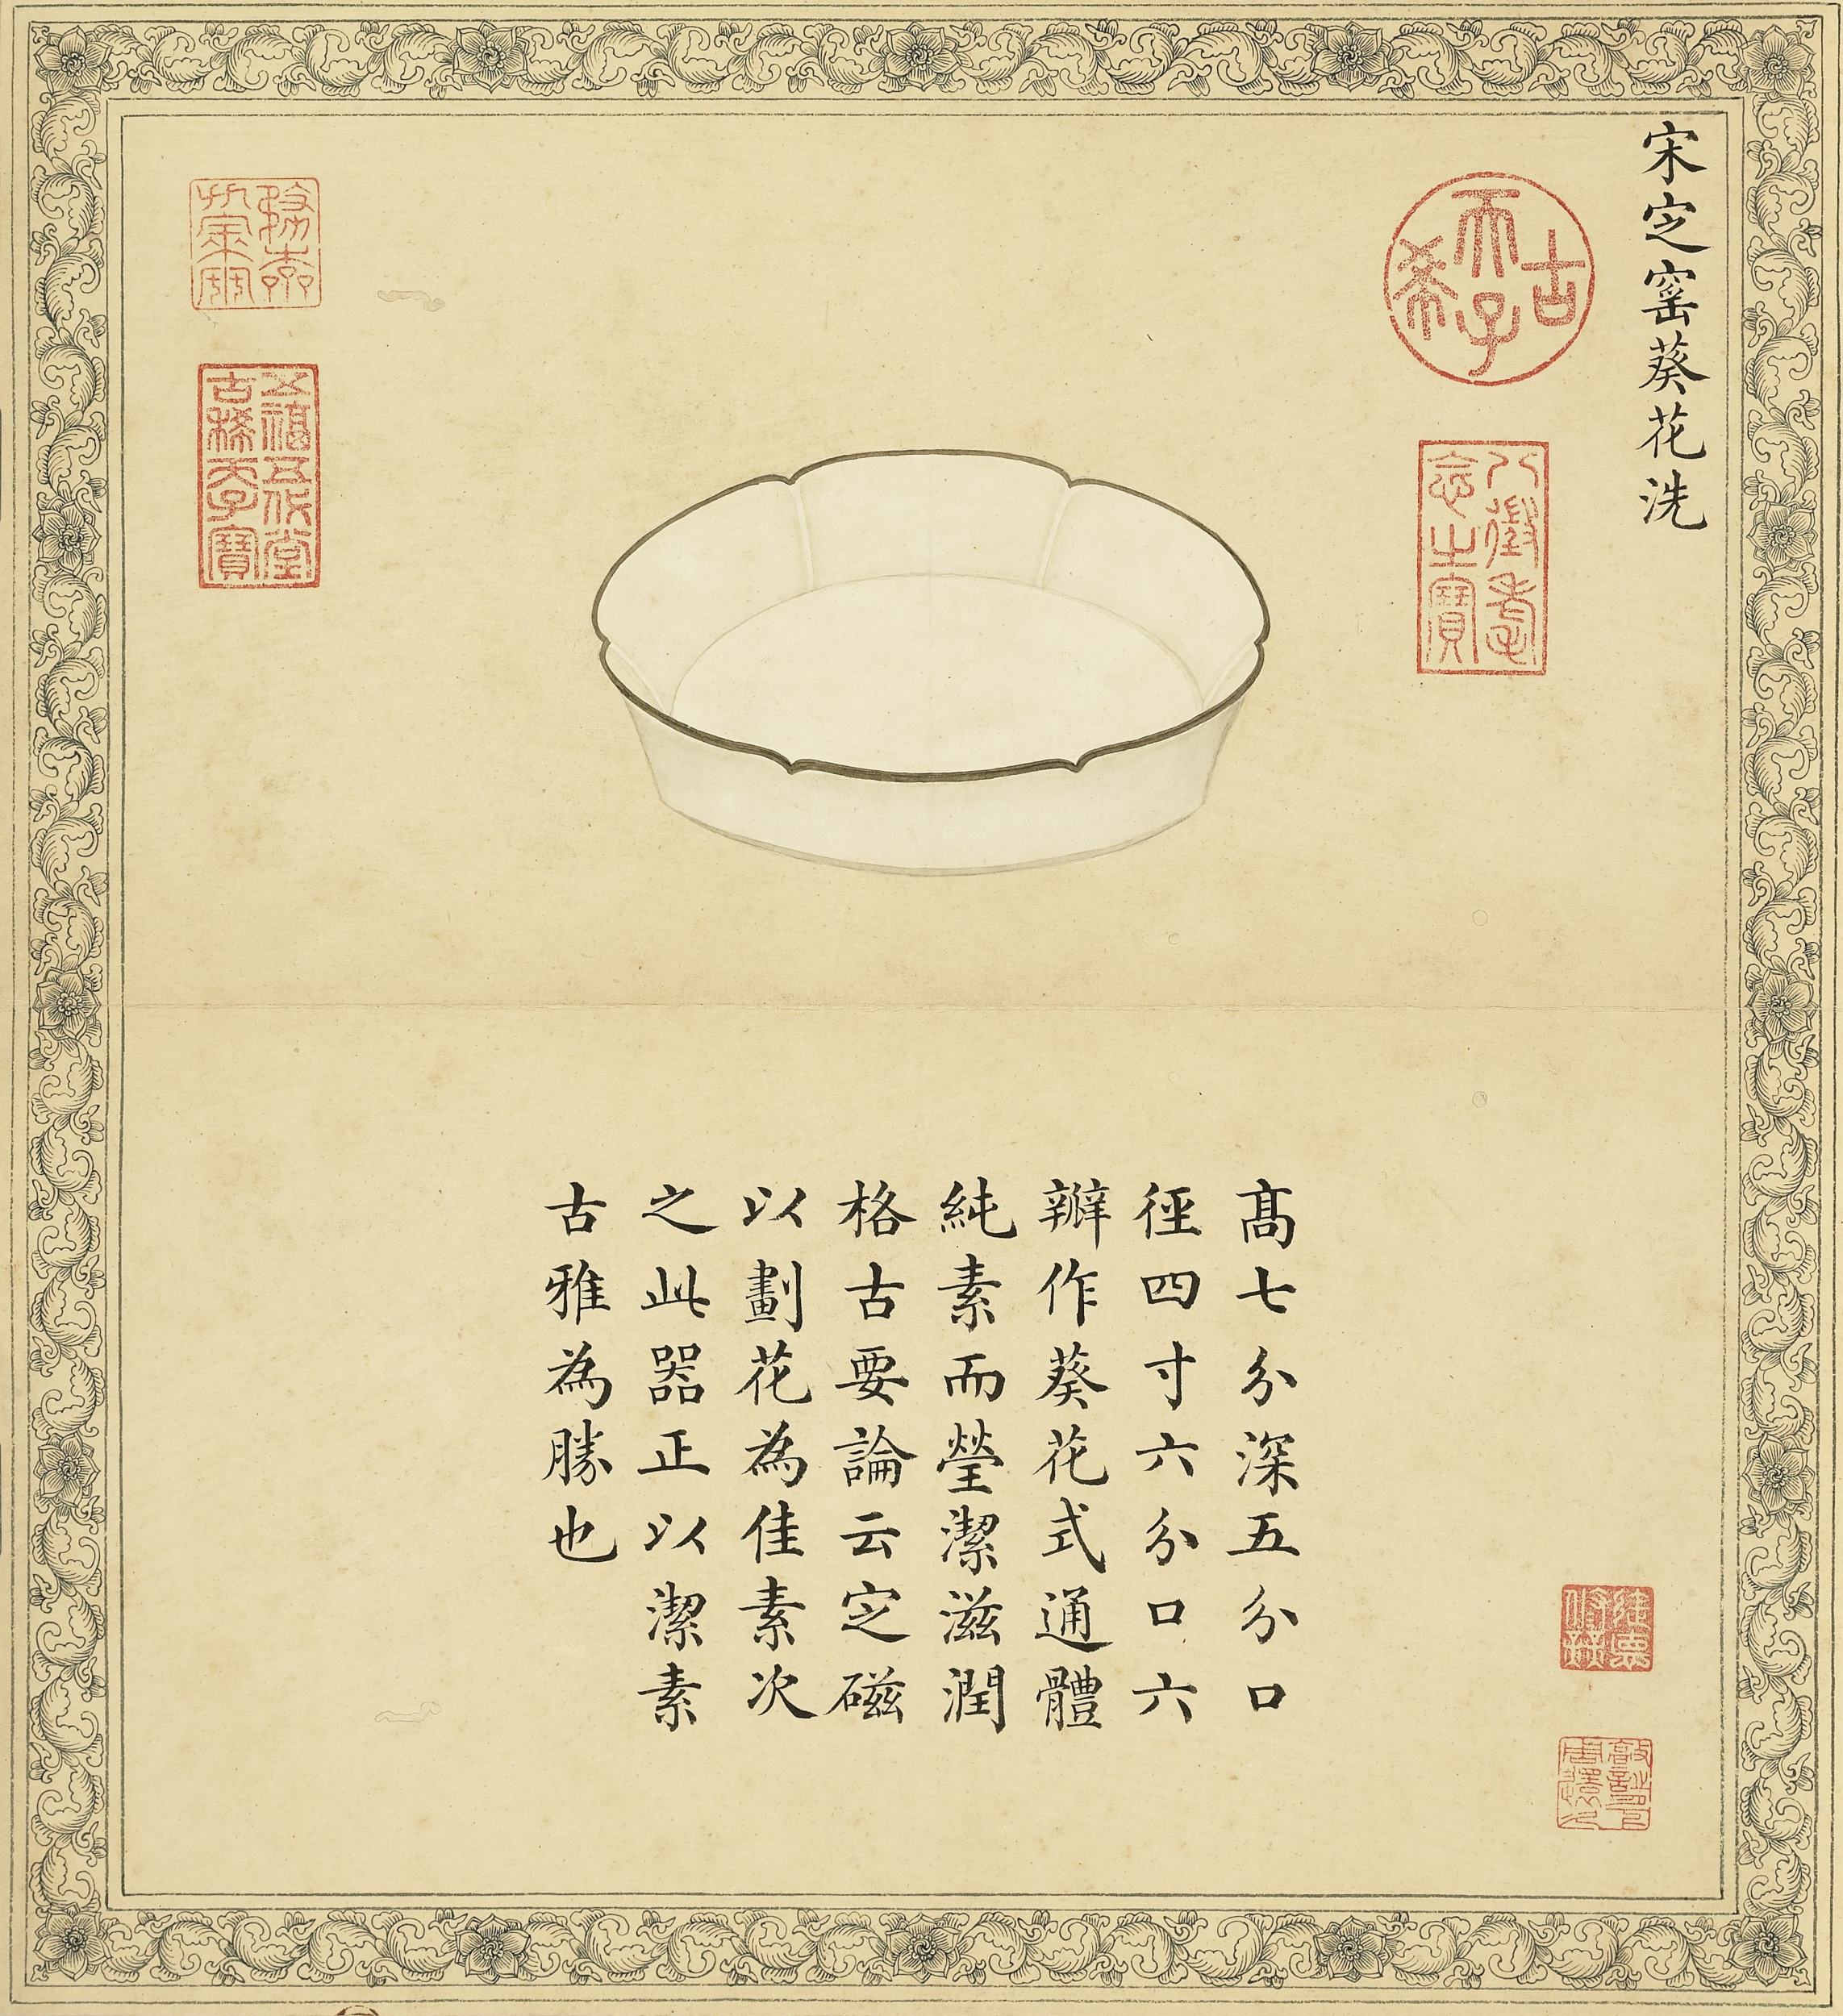 宋定窰葵花洗
古希天子
八徵耄念之寳
猗蘭
五福五代堂古稀天子寳
高七分深五分口
徑四寸六分口六
瓣作葵花式通體
純素而瑩潔滋潤
格古要論云定磁
以劃花為佳素次
之此器正以潔素
古雅為勝也